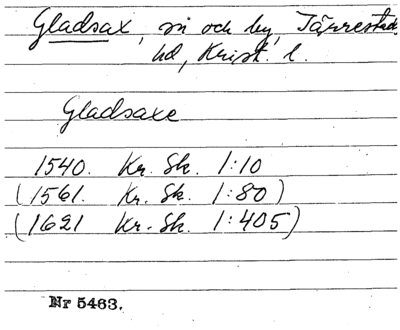 Gladsax, sn och by, Järrestads
hd, Krist. l.
Gladsaxe
1540. Kr. Sk. 1:10
(1561. Kr. Sk. 1:80)
(1621 Kr. Sk. 1:405)
Nr 5463.